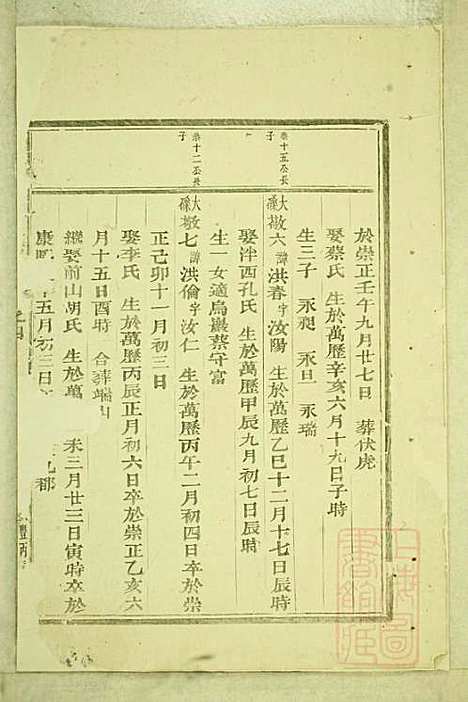 於崇正壬午九月廿七日　葬伏虎
娶蔡氏　生於萬歷辛亥六月十九日子時
生三子　永昶　永旦　永瑞
崇十五公長子
大房敬六　諱洪春字汝陽　生於萬歷乙巳十二月十七日辰時
娶泮西孔氏　生於萬歷甲辰九月初七日辰時
生一女適烏巖蔡守富
崇十二公長子
大房敬七　諱洪倫字汝仁　生於萬歷丙午二月初四日卒於崇
正己卯十一月初三日
娶李氏　生於萬歷丙辰正月初六日卒於崇正乙亥六
月十五日酉時　合葬端山
繼娶前山胡氏　生於萬　未三月廿三日寅時卒於
康　五月初三日